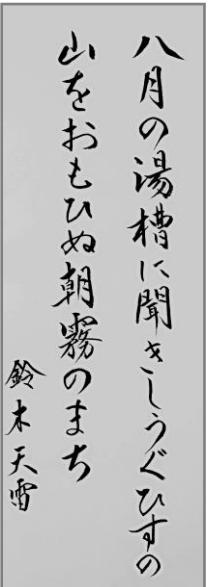 八月の湯槽に聞きしうぐひすの
山をおもひぬ朝霧のまち
鈴木天雷